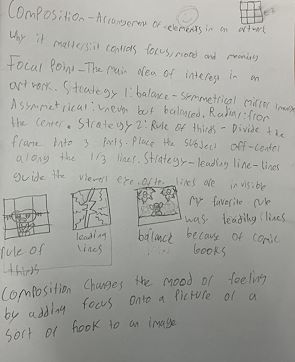 Composition - Arrangement of elements in an artwork
Why it matters: it controls focus, mood and meaning
Focal Point - The main area of interest in an
artwork. Strategy 1: balance - symmetrical mirror image
Asymmetrical: uneven but balanced. Radial: from
the center. Strategy 2: Rule of thirds - Divide the
frame into 3 parts. Place the subject off-center
along the 1/3 lines. Strategy - leading line - lines
guide the viewers eye. often lines are invisible
my favorite rule
was leading lines
because of comic
books
rule of
thirds
leading
lines
balance
Composition changes the mood or feeling
by adding focus onto a picture or a
sort of hook to an image